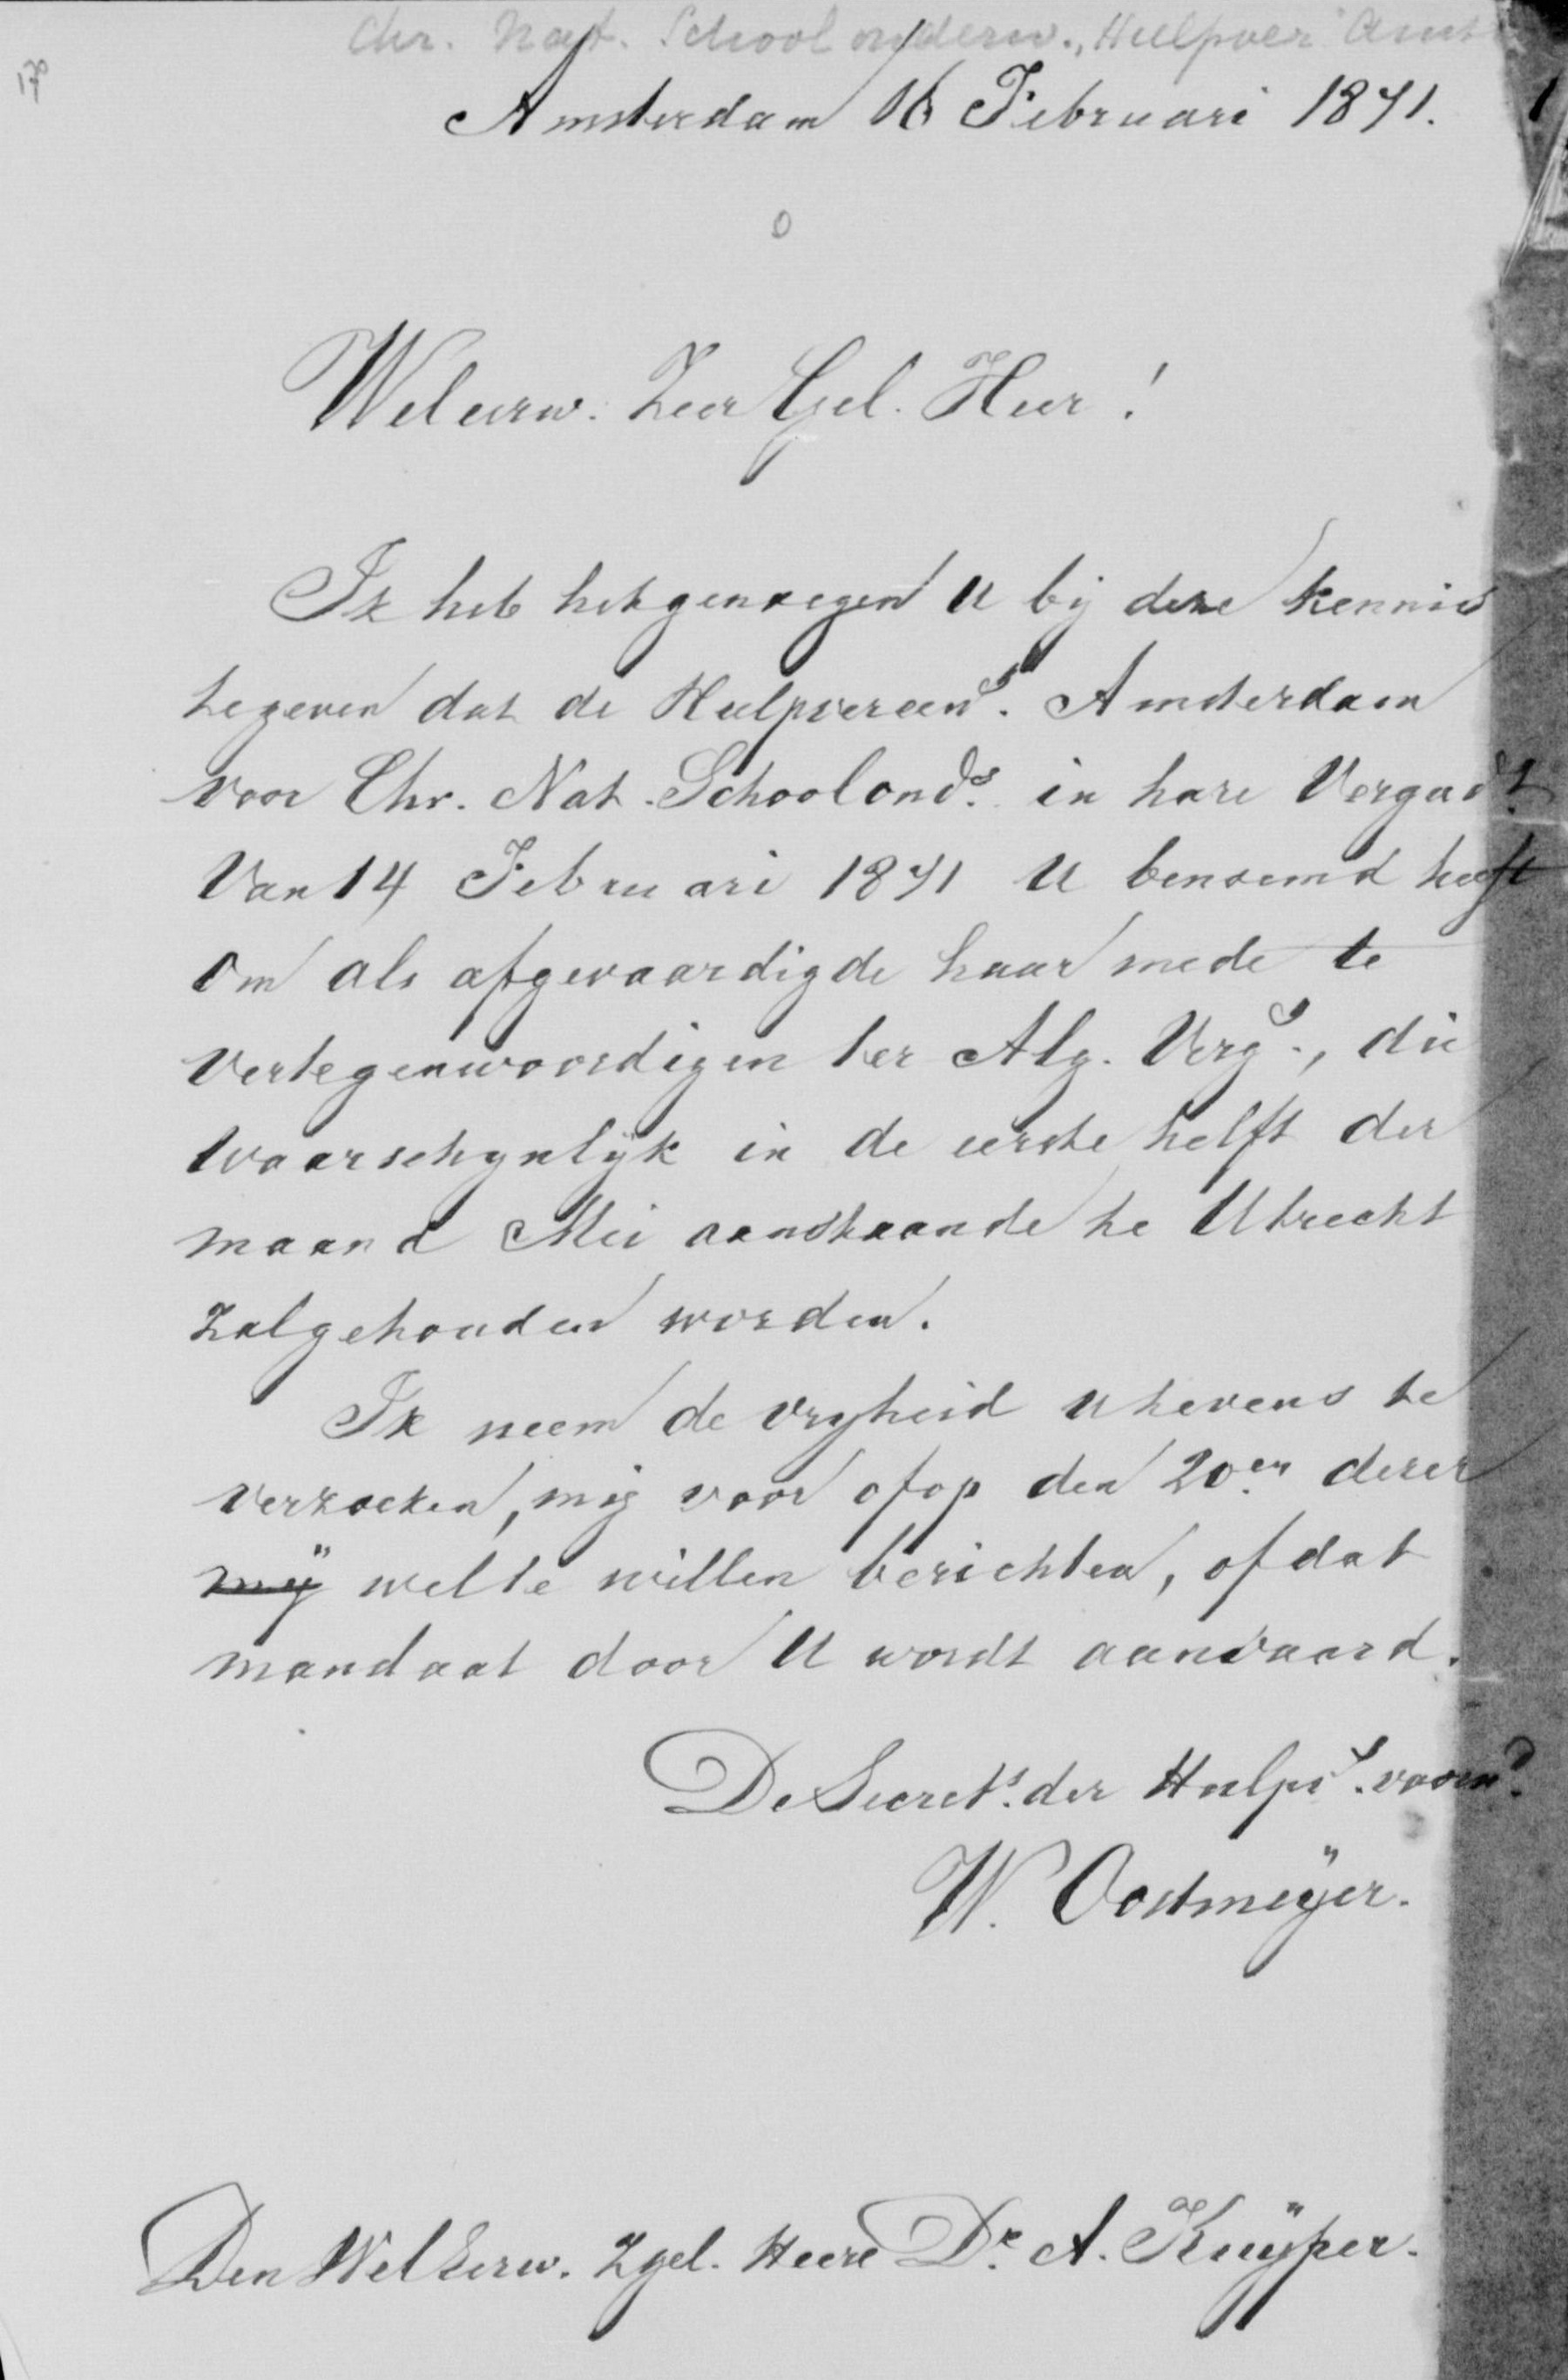 Chr. Nat. Schoolonderw. "Hulpver" Amst
170
Amsterdam 16 Februari 1871.
Weleerw. Zeer Gel. Heer!
Ik heb het genoegen U bij deze kennis
te geven dat de Hulpvereeng. Amsterdam
voor Chr. Nat. Schoolonds. in hare Vergadg.
van 14 Februari 1871 U benoemd heeft
om als afgevaardigde haar mede te
vertegenwoordigen ter Alg. Verg., die
waarschynlyk in de eerste helft der
maand Mei aanstaande te Utrecht
zal gehouden worden.
Ik neem de vryheid U tevens te
verzoeken, mij voor of op den 20en dezer
mÿ wel te willen berichten, of dat
mandaat door U wordt aanvaard.
De Secrets. der Hulpvg. voornd.
W. Oostmeÿer.
Den WelEerw. Zgel. Heere Dr. A. Kuÿper.